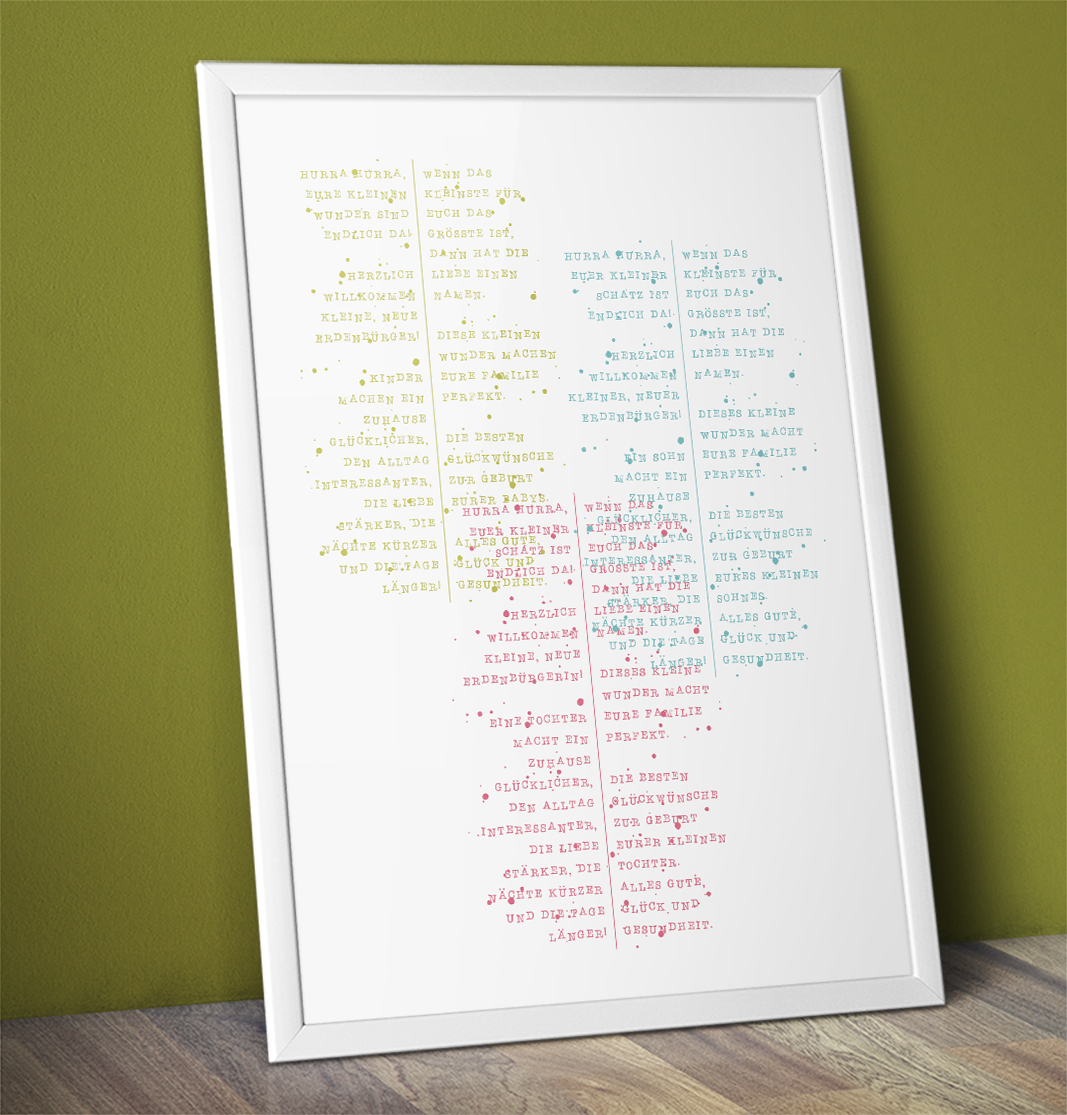 HURRA HURRA,
EURE KLEINEN
WUNDER SIND
ENDLICH DA!
HERZLICH
WILLKOMMEN
KLEINE, NEUE
ERDENBÜRGER!
KINDER
MACHEN EIN
ZUHAUSE
GLÜCKLICHER,
DEN ALLTAG
INTERESSANTER,
DIE LIEBE
STÄRKER, DIE
NÄCHTE KÜRZER
UND DIE TAGE
LÄNGER!
WENN DAS
KLEINSTE FÜR
EUCH DAS
GRÖSSTE IST,
DANN HAT DIE
LIEBE EINEN
NAMEN.
DIESE KLEINEN
WUNDER MACHEN
EURE FAMILIE
PERFEKT.
DIE BESTEN
GLÜCKWÜNSCHE
ZUR GEBURT
EURER BABYS.
ALLES GUTE,
GLÜCK UND
GESUNDHEIT.
HURRA HURRA,
EUER KLEINER
SCHATZ IST
ENDLICH DA!
HERZLICH
WILLKOMMEN
KLEINER, NEUER
ERDENBÜRGER!
EIN SOHN
MACHT EIN
ZUHAUSE
GLÜCKLICHER,
DEN ALLTAG
INTERESSANTER,
DIE LIEBE
STÄRKER, DIE
NÄCHTE KÜRZER
UND DIE TAGE
LÄNGER!
WENN DAS
KLEINSTE FÜR
EUCH DAS
GRÖSSTE IST,
DANN HAT DIE
LIEBE EINEN
NAMEN.
DIESES KLEINE
WUNDER MACHT
EURE FAMILIE
PERFEKT.
DIE BESTEN
GLÜCKWÜNSCHE
ZUR GEBURT
EURES KLEINEN
SOHNES.
ALLES GUTE,
GLÜCK UND
GESUNDHEIT.
HURRA HURRA,
EUER KLEINER
SCHATZ IST
ENDLICH DA!
HERZLICH
WILLKOMMEN
KLEINE, NEUE
ERDENBÜRGERIN!
EINE TOCHTER
MACHT EIN
ZUHAUSE
GLÜCKLICHER,
DEN ALLTAG
INTERESSANTER,
DIE LIEBE
STÄRKER, DIE
NÄCHTE KÜRZER
UND DIE TAGE
LÄNGER!
WENN DAS
KLEINSTE FÜR
EUCH DAS
GRÖSSTE IST,
DANN HAT DIE
LIEBE EINEN
NAMEN.
DIESES KLEINE
WUNDER MACHT
EURE FAMILIE
PERFEKT.
DIE BESTEN
GLÜCKWÜNSCHE
ZUR GEBURT
EURER KLEINEN
TOCHTER.
ALLES GUTE,
GLÜCK UND
GESUNDHEIT.